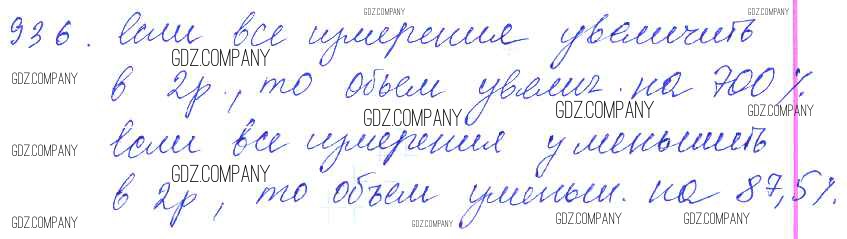 936. Если все измерения увеличить
в 2р., то объем увелич. на 700%.
Если все измерения уменьшить
в 2р, то объем уменьш. на 87,5%.
GDZ.COMPANY GDZ.COMPANY
GDZ.COMPANY
GDZ.COMPANY
GDZ.COMPANY GDZ.COMPANY GDZ.COMPANY
GDZ.COMPANY
GDZ.COMPANY
GDZ.COMPANY GDZ.COMPANY GDZ.COMPANY GDZ.COMPANY